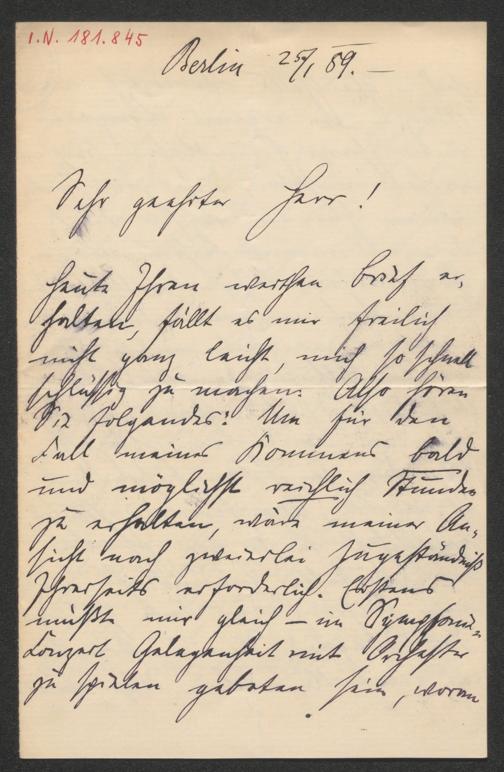 I.N. 181.845
Berlin 25/1 89. —
Sehr geehrter Herr!
Heute Ihren werthen Brief er-
halten, fällt es mir freilich
nicht ganz leicht, mich so schnell
schlüssig zu machen. Also hören
Sie folgendes: Um für den
Fall meines Kommens bald
und möglichst reichlich Stunden
zu erhalten, wäre meiner An-
sicht nach zweierlei Zugeständniß
Ihrerseits erforderlich. Erstens
müßte mir gleich – im Symphonie-
Konzert Gelegenheit mit Orchester
zu spielen geboten sein, woran